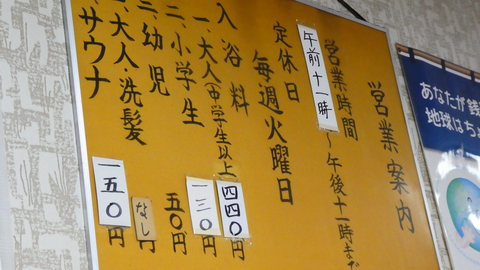 営業案内
営業時間
午前十一時〜午後十一時まで
定休日
毎週火曜日
入浴料
一、大人(中学生以上 四四〇円
二、小学生 一三〇円
三、幼児 五〇円
一、大人洗髪 なし円
一、サウナ 一五〇円
あなたが銭
地球はち